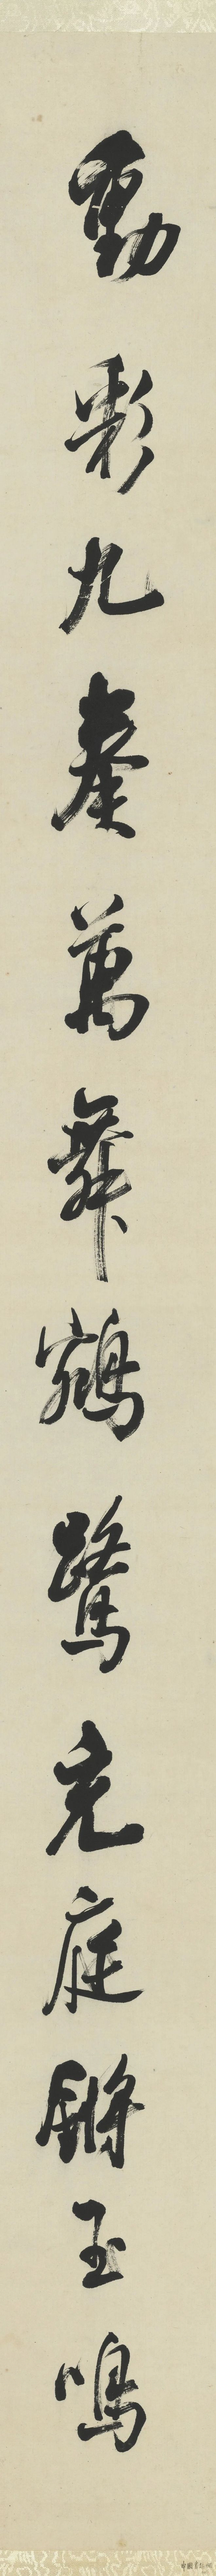 動彩九奏萬舞鶴鷺充庭鏘玉鳴